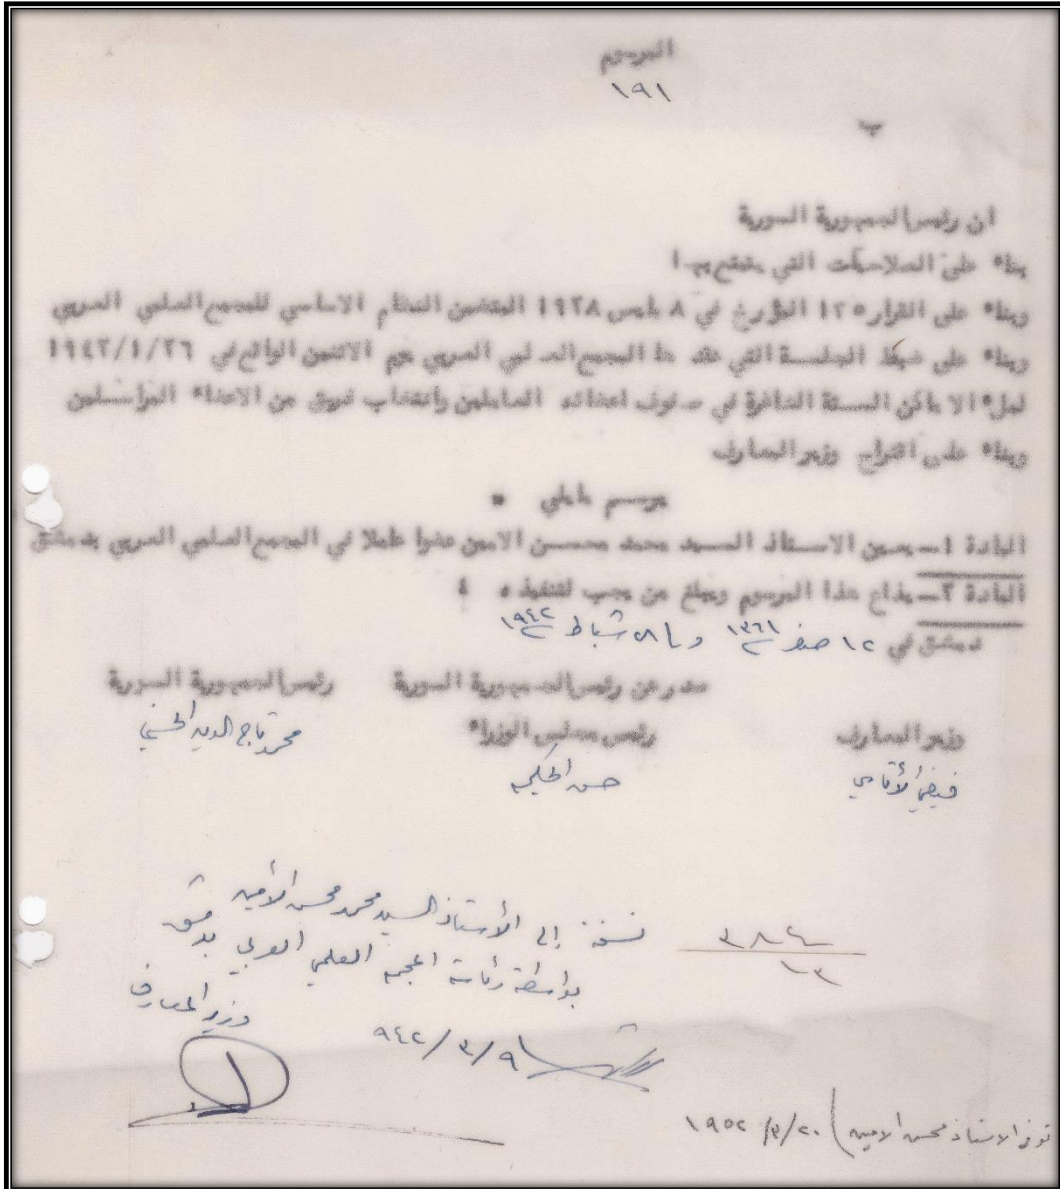 المرسوم
١٩١
ان رئيس الجمهورية السورية
بناء على الصلاحيات التي يتمتع بها
وبناء على القرار ١٣٥ المؤرخ في ٨ مارس ١٩٢٨ المتضمن النظام الاساسي للمجمع العلمي العربي
وبناء على ضبط الجلسة التي عقدها المجمع العلمي العربي يوم الاثنين الواقع في ١٩٤٢/١/٢٦
لملء الاماكن الستة الشاغرة في صفوف اعضائه العاملين وانتخاب فريق من الاعضاء المراسلين
وبناء على اقتراح وزير المعارف
يرسم مايلي
المادة ١ـ يعين الاستاذ السيد محمد محسن الامين عضوا عاملا في المجمع العلمي العربي بدمشق
المادة ٢ـ يذاع هذا المرسوم ويبلغ من يجب لتنفيذه
دمشق في ١٢ صفر ١٣٦١ و ٢٨ شباط ١٩٤٢
صدر عن رئيس الجمهورية السورية رئيس الجمهورية السورية
وزير المعارف رئيس مجلس الوزراء محمد تاج الدين الحسني
فيضي الأتاسي حسن الحكيم
نسخة إلى الأستاذ السيد محمد محسن الأمين
بواسطة رئاسة المجمع العلمي العربي بدمشق
٣٨٤
١٣
وزير المعارف
٩٤٢/٣/٩
توفي الاستاذ محسن الامين ١٩٥٢/٣/٣٠